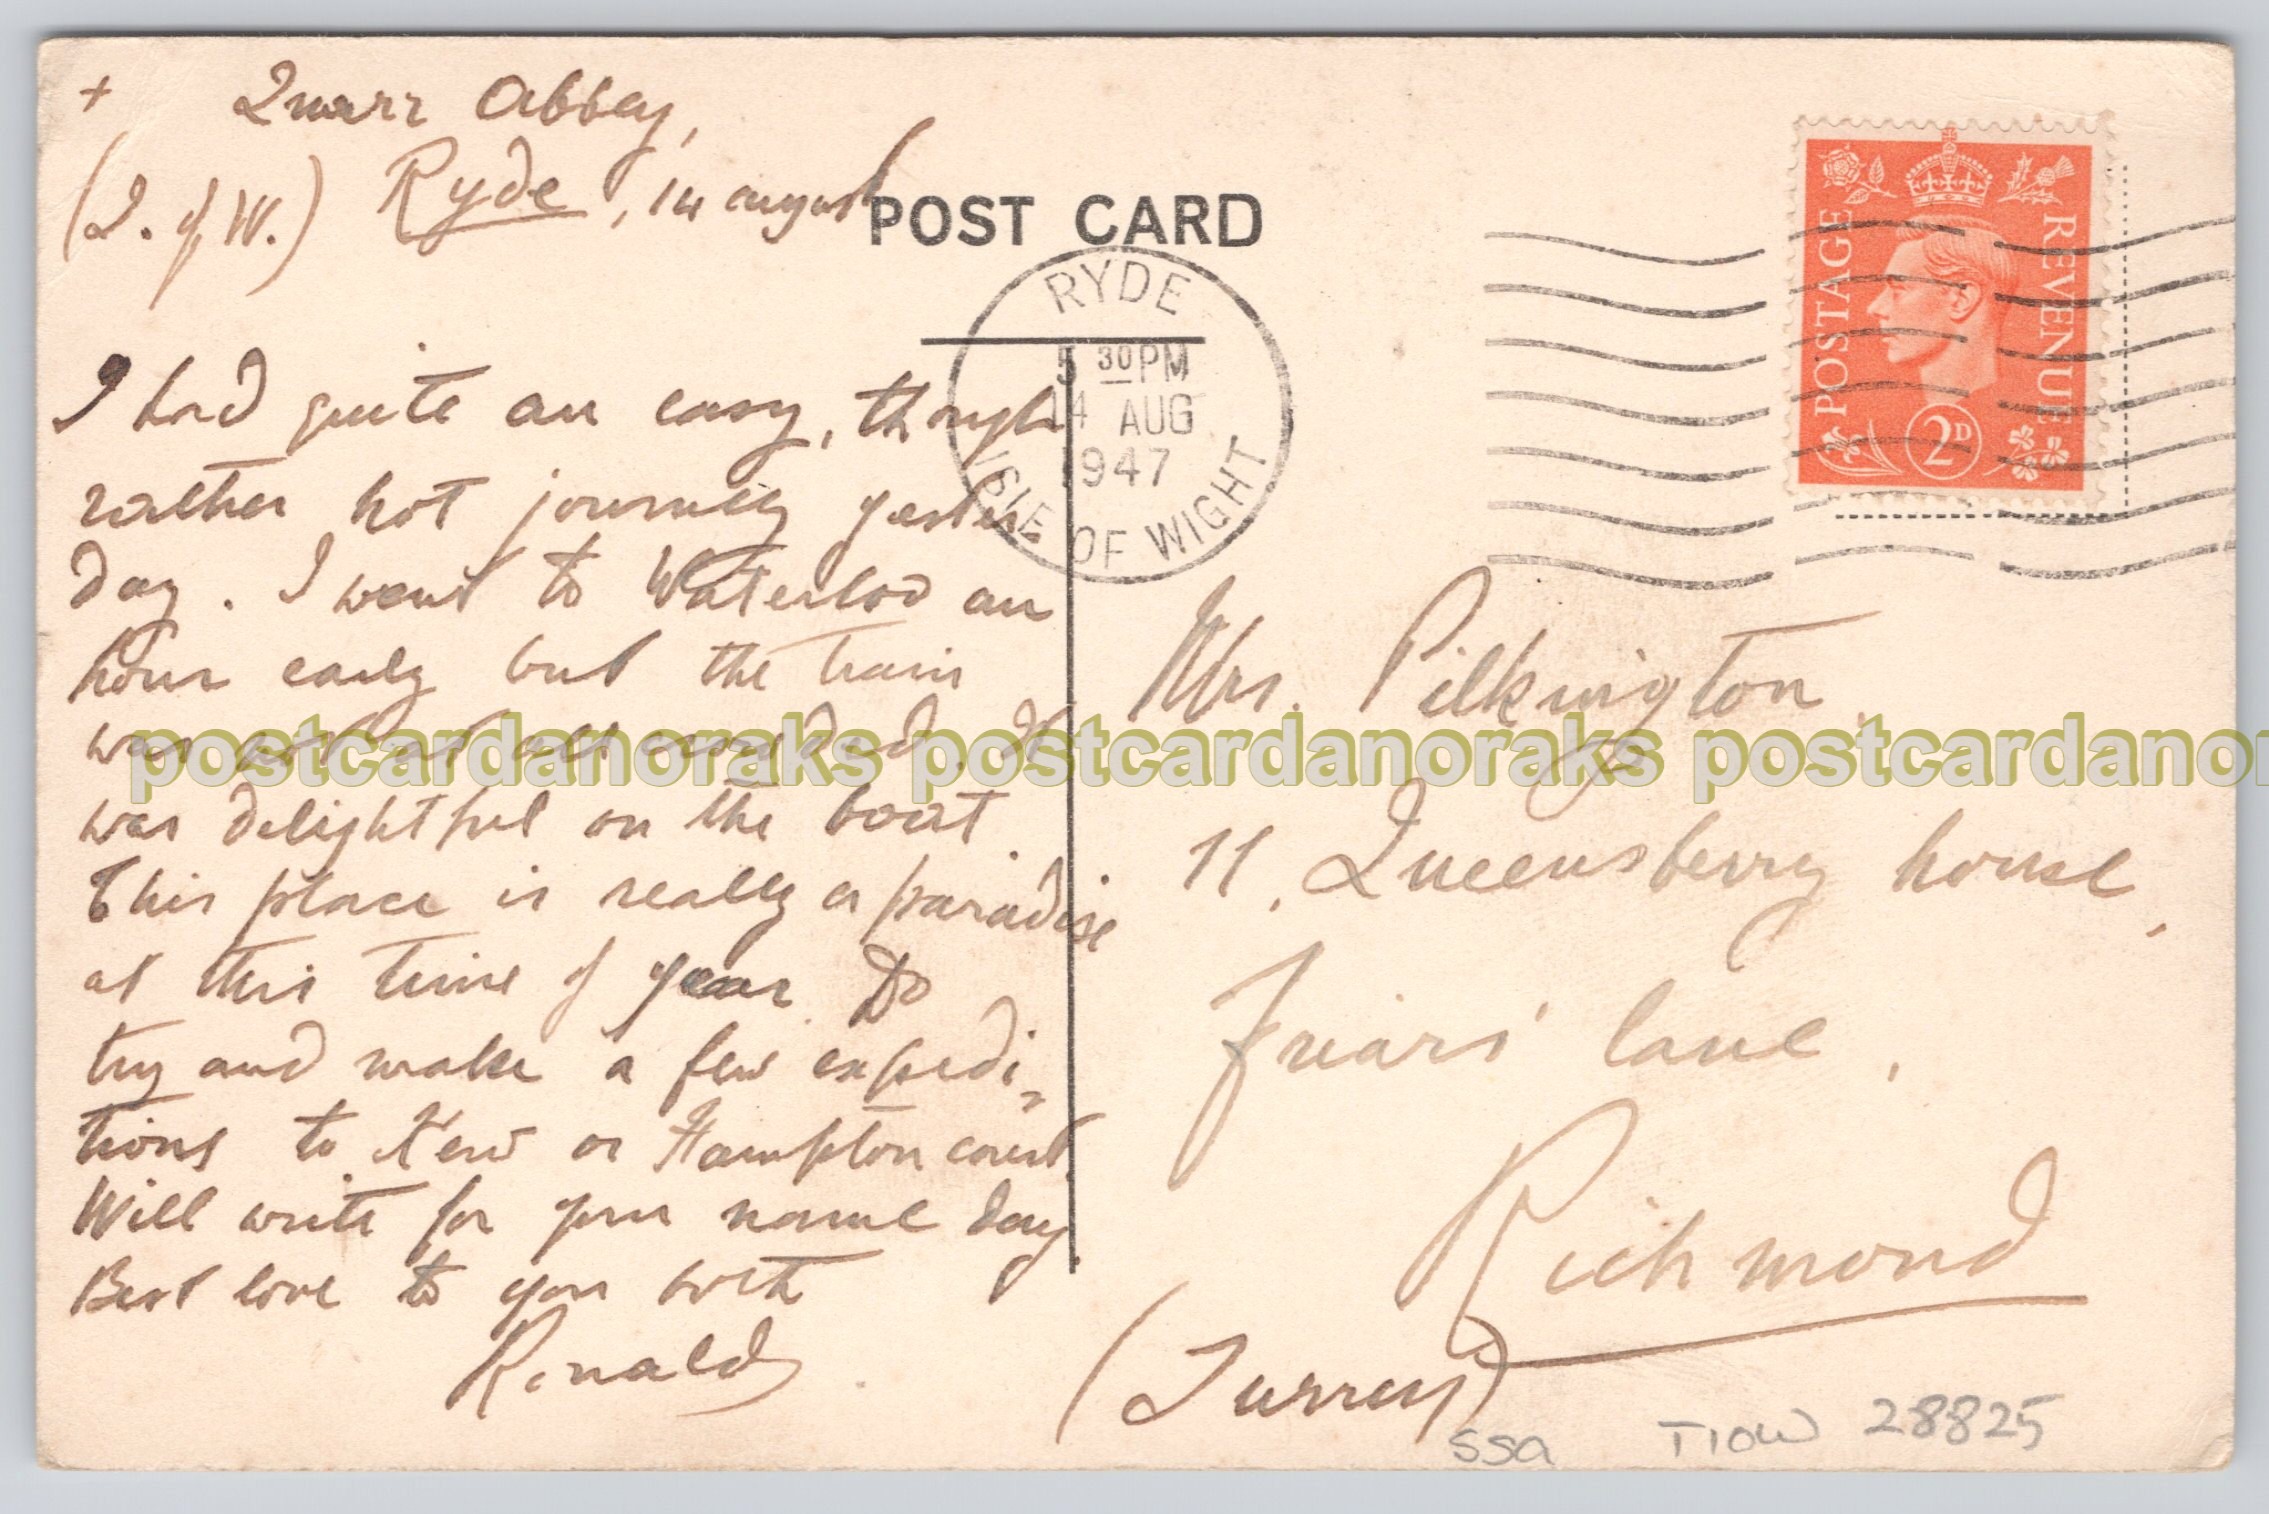 + Quarr Abbey,
(I. of W.) Ryde, 14 august
I had quite an easy, though
rather hot journey yester
day. I went to Waterloo an
hour early but the train
was not at all crowded. It
was delightful on the boat.
This place is really a paradise
at this time of year. Do
try and make a few expedi-
tions to Kew or Hampton court.
Will write for your name day.
Best love to you both
Ronald
POST CARD
RYDE
5 30 PM
14 AUG
1947
ISLE OF WIGHT
POSTAGE REVENUE
2D
Mrs. Pilkington,
11, Queensberry house,
Friars' lane,
Richmond
(Surrey)
SSA TIOW 28825
postcardanoraks postcardanoraks postcardanor